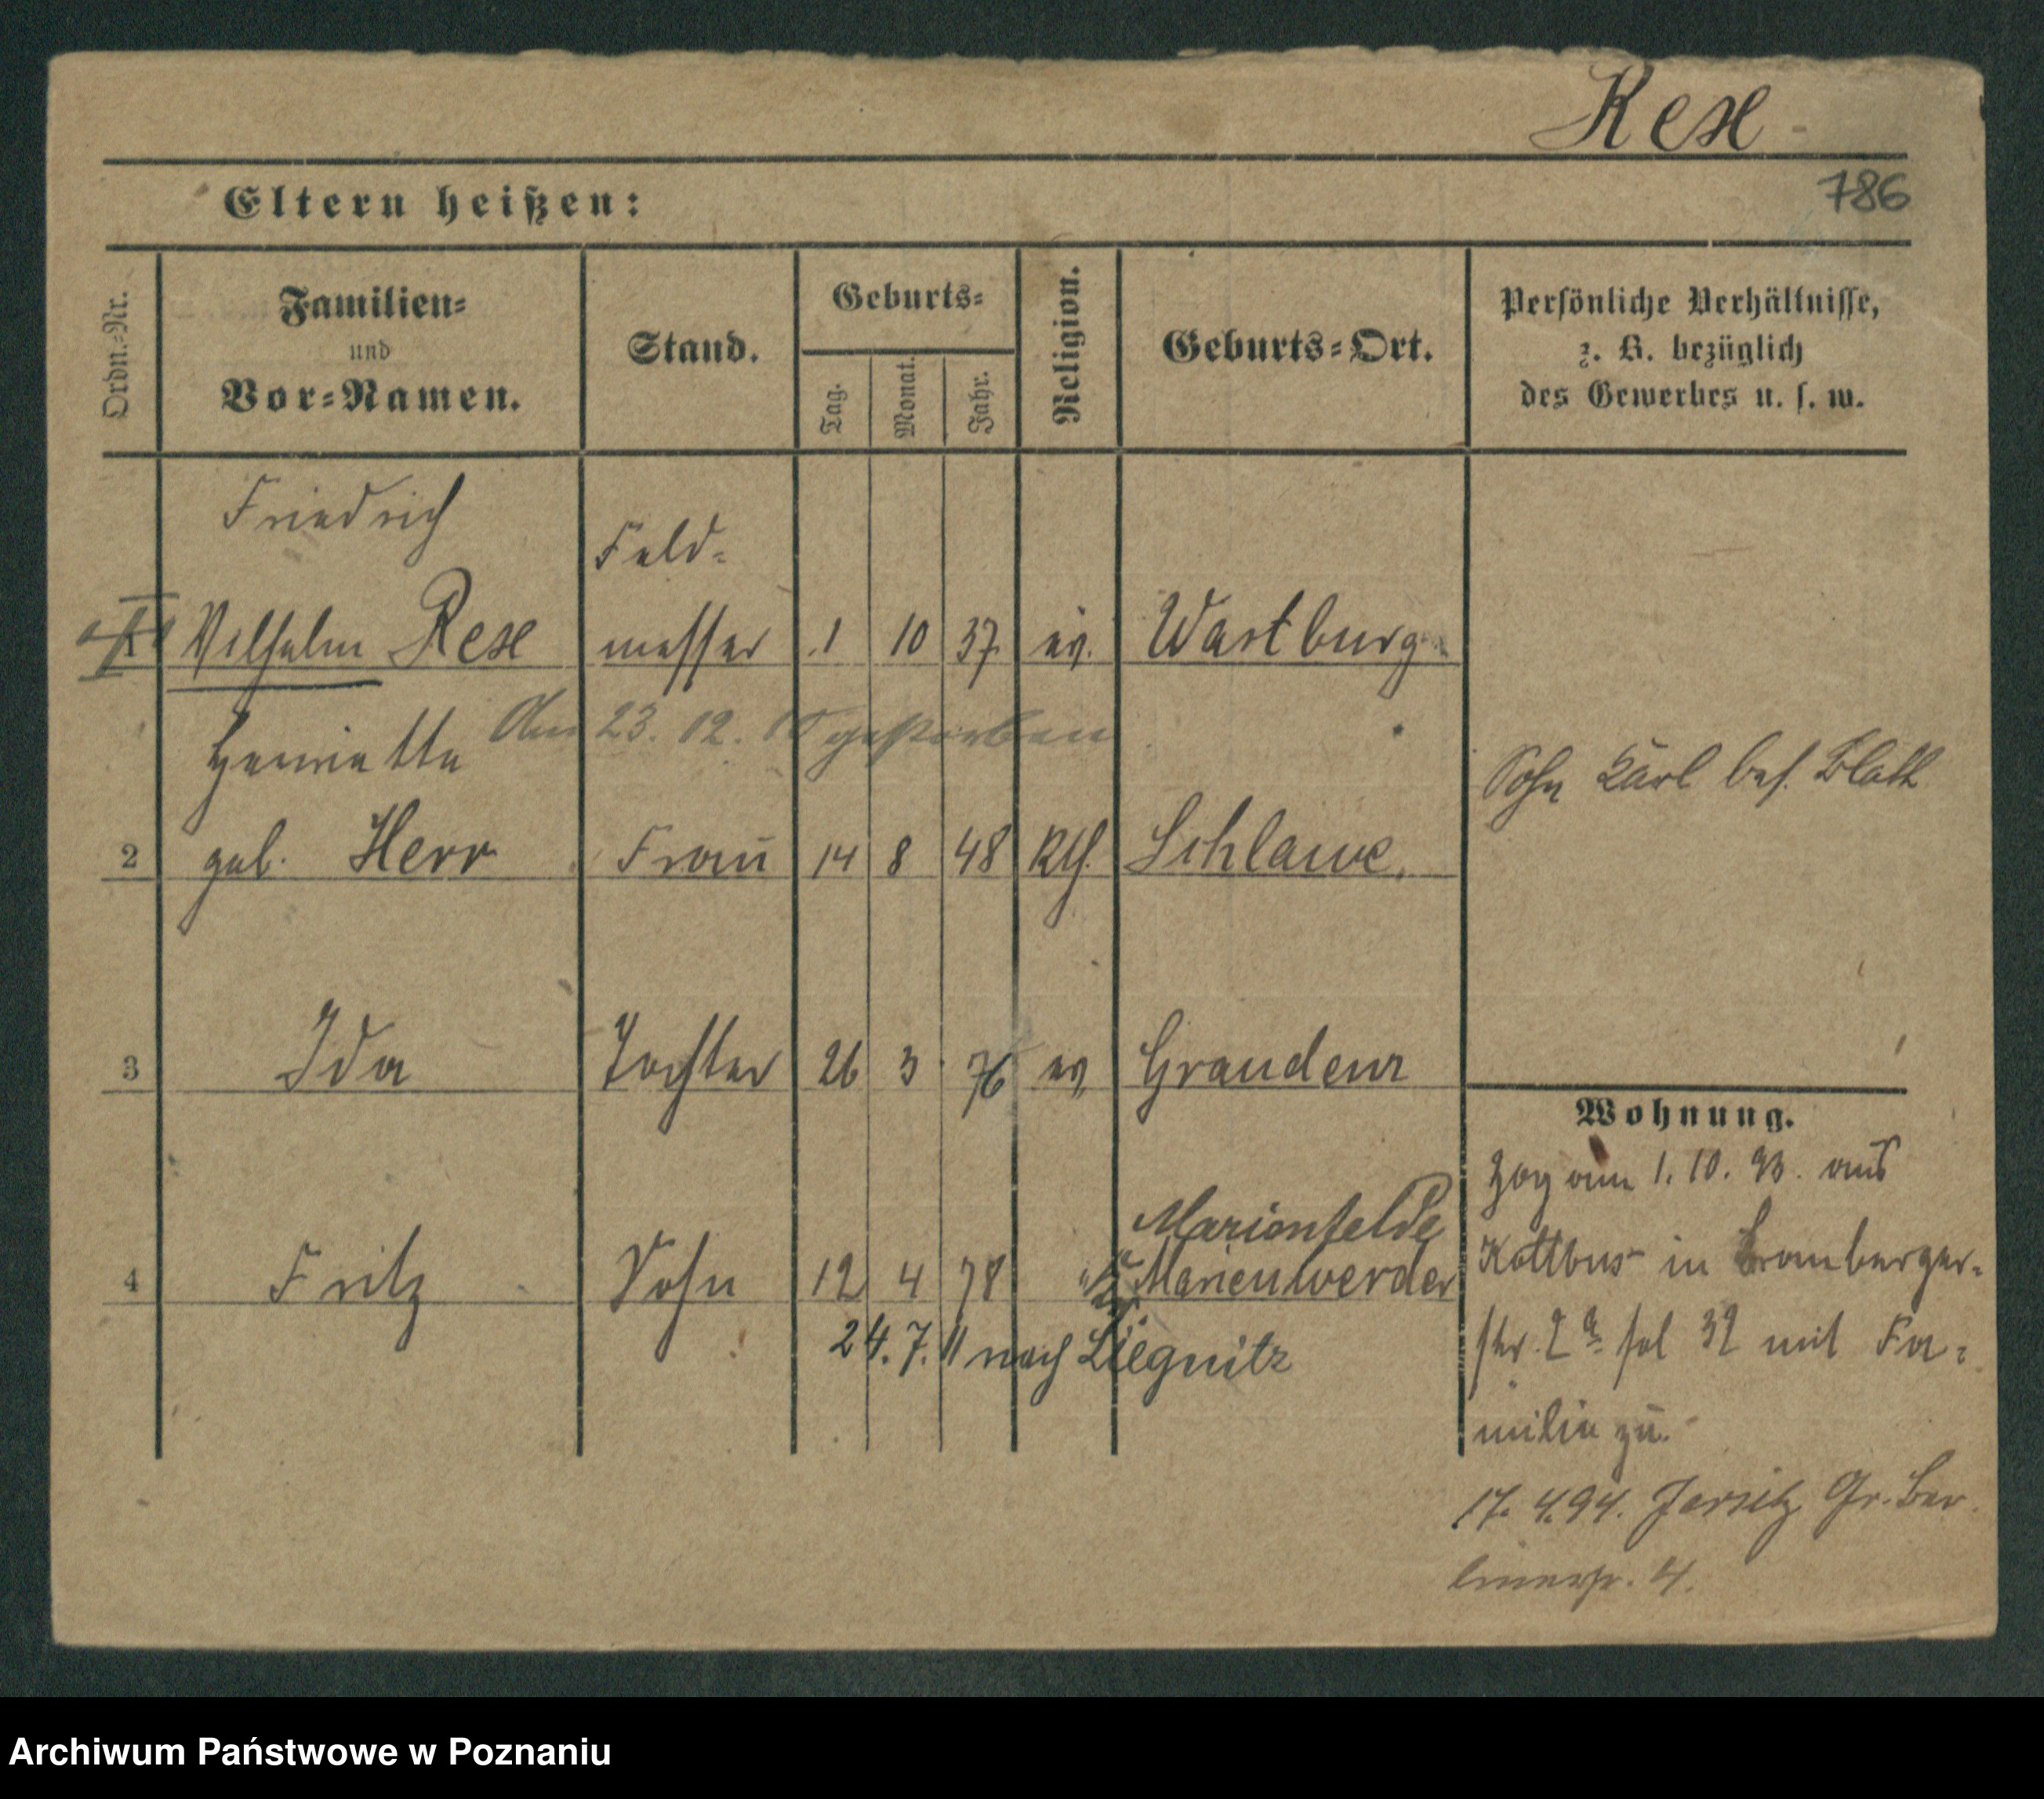 Rese
786
Eltern heißen:
Ordn.-Nr.
Familien-
und
Vor-Namen.
Stand.
Geburts-
Tag.
Monat.
Jahr.
Religion.
Geburts-Ort.
Persönliche Verhältnisse,
z. B. bezüglich
des Gewerbes u. s. w.
Friedrich
Wilhelm Rese
Feld-
messer
1 10 37 ev. Wartburg
Am 23. 12. gestorben
Henriette
2 geb. Herr Frau 14 8 48 Kth. Schlawe.
Sohn Karl bes. Blatt
3 Ida Tochter 26 3 76 ev. Graudenz
Marienfelde
4 Fritz Sohn 12 4 78 " Marienwerder
24. 7. 11 nach Liegnitz
Wohnung.
Zog am 1. 10. 93. aus
Kottbus in Bromberger-
str. 2a fol 32 mit Fa-
milie zu.
17. 4. 94. Jersitz Gr. Ber
linerstr. 4.
Archiwum Państwowe w Poznaniu